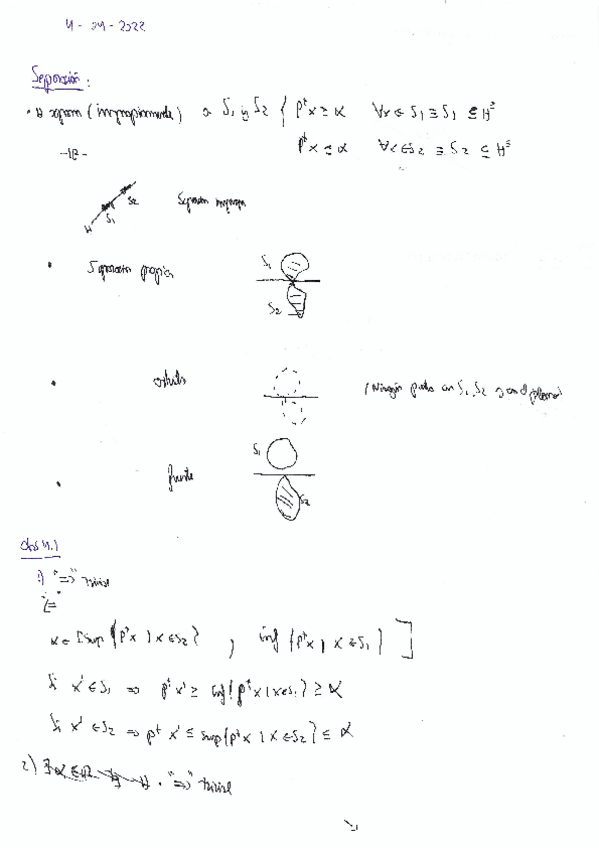 4 - 04 - 2022
Separación:
• H separa (impropiamente) a S₁ y S₂ { pᵗx ≥ α ∀x ∈ S₁ ≡ S₁ ⊆ H^≥
pᵗx ≤ α ∀x ∈ S₂ ≡ S₂ ⊆ H^≤
S₂
S₁
H
Separación impropia
• Separación propia
S₁
S₂
• estricta
(Ningún punto en S₁, S₂ en el plano)
• fuerte
S₁
S₂
Obs 4.1
1) "⇒" trivial
"⇐"
α ∈ [sup {pᵗx | x ∈ S₂}, inf {pᵗx | x ∈ S₁}]
Si x' ∈ S₁ ⇒ pᵗx' ≥ inf {pᵗx | x ∈ S₁} ≥ α
Si x' ∈ S₂ ⇒ pᵗx' ≤ sup {pᵗx | x ∈ S₂} ≤ α
2) "⇒" trivial